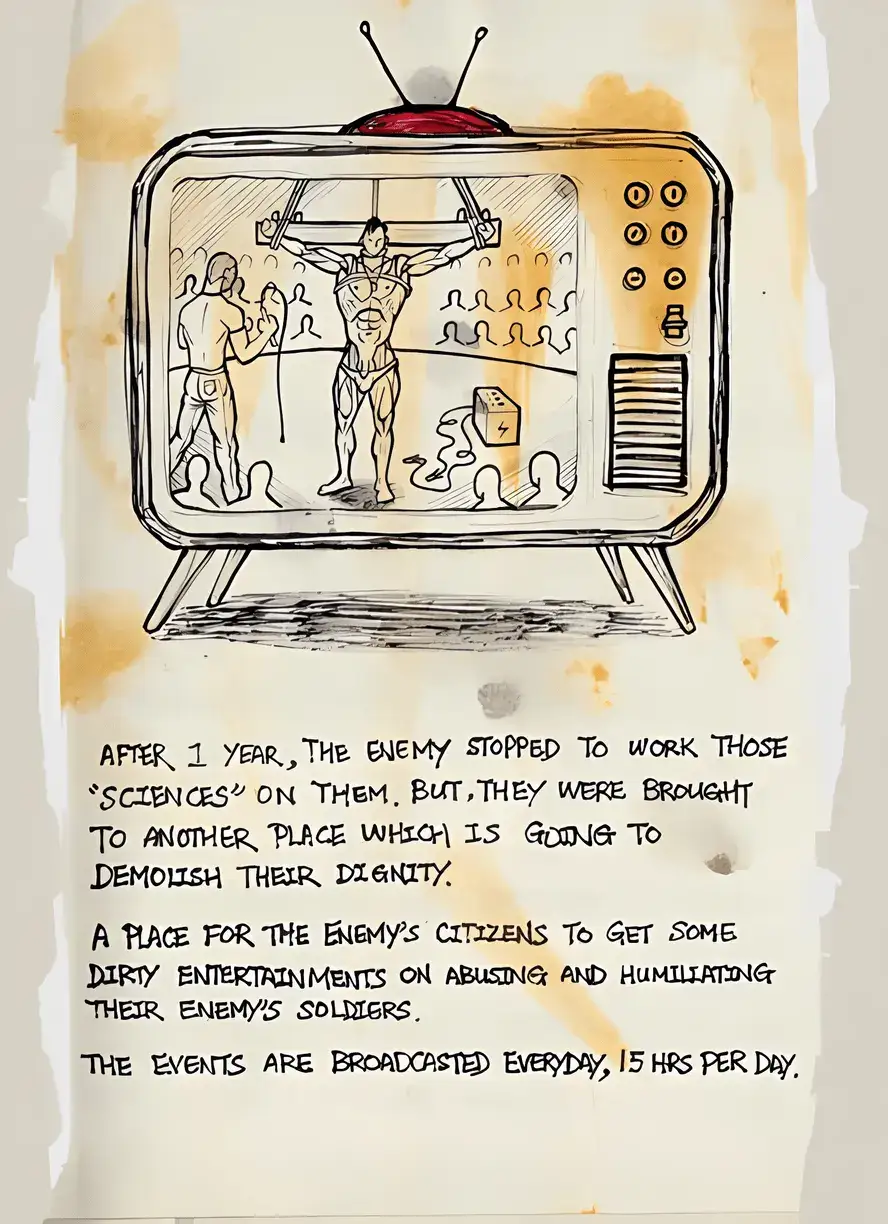 AFTER 1 YEAR, THE ENEMY STOPPED TO WORK THOSE
"SCIENCES" ON THEM. BUT, THEY WERE BROUGHT
TO ANOTHER PLACE WHICH IS GOING TO
DEMOLISH THEIR DIGNITY.
A PLACE FOR THE ENEMY'S CITIZENS TO GET SOME
DIRTY ENTERTAINMENTS ON ABUSING AND HUMILIATING
THEIR ENEMY'S SOLDIERS.
THE EVENTS ARE BROADCASTED EVERYDAY, 15 HRS PER DAY.